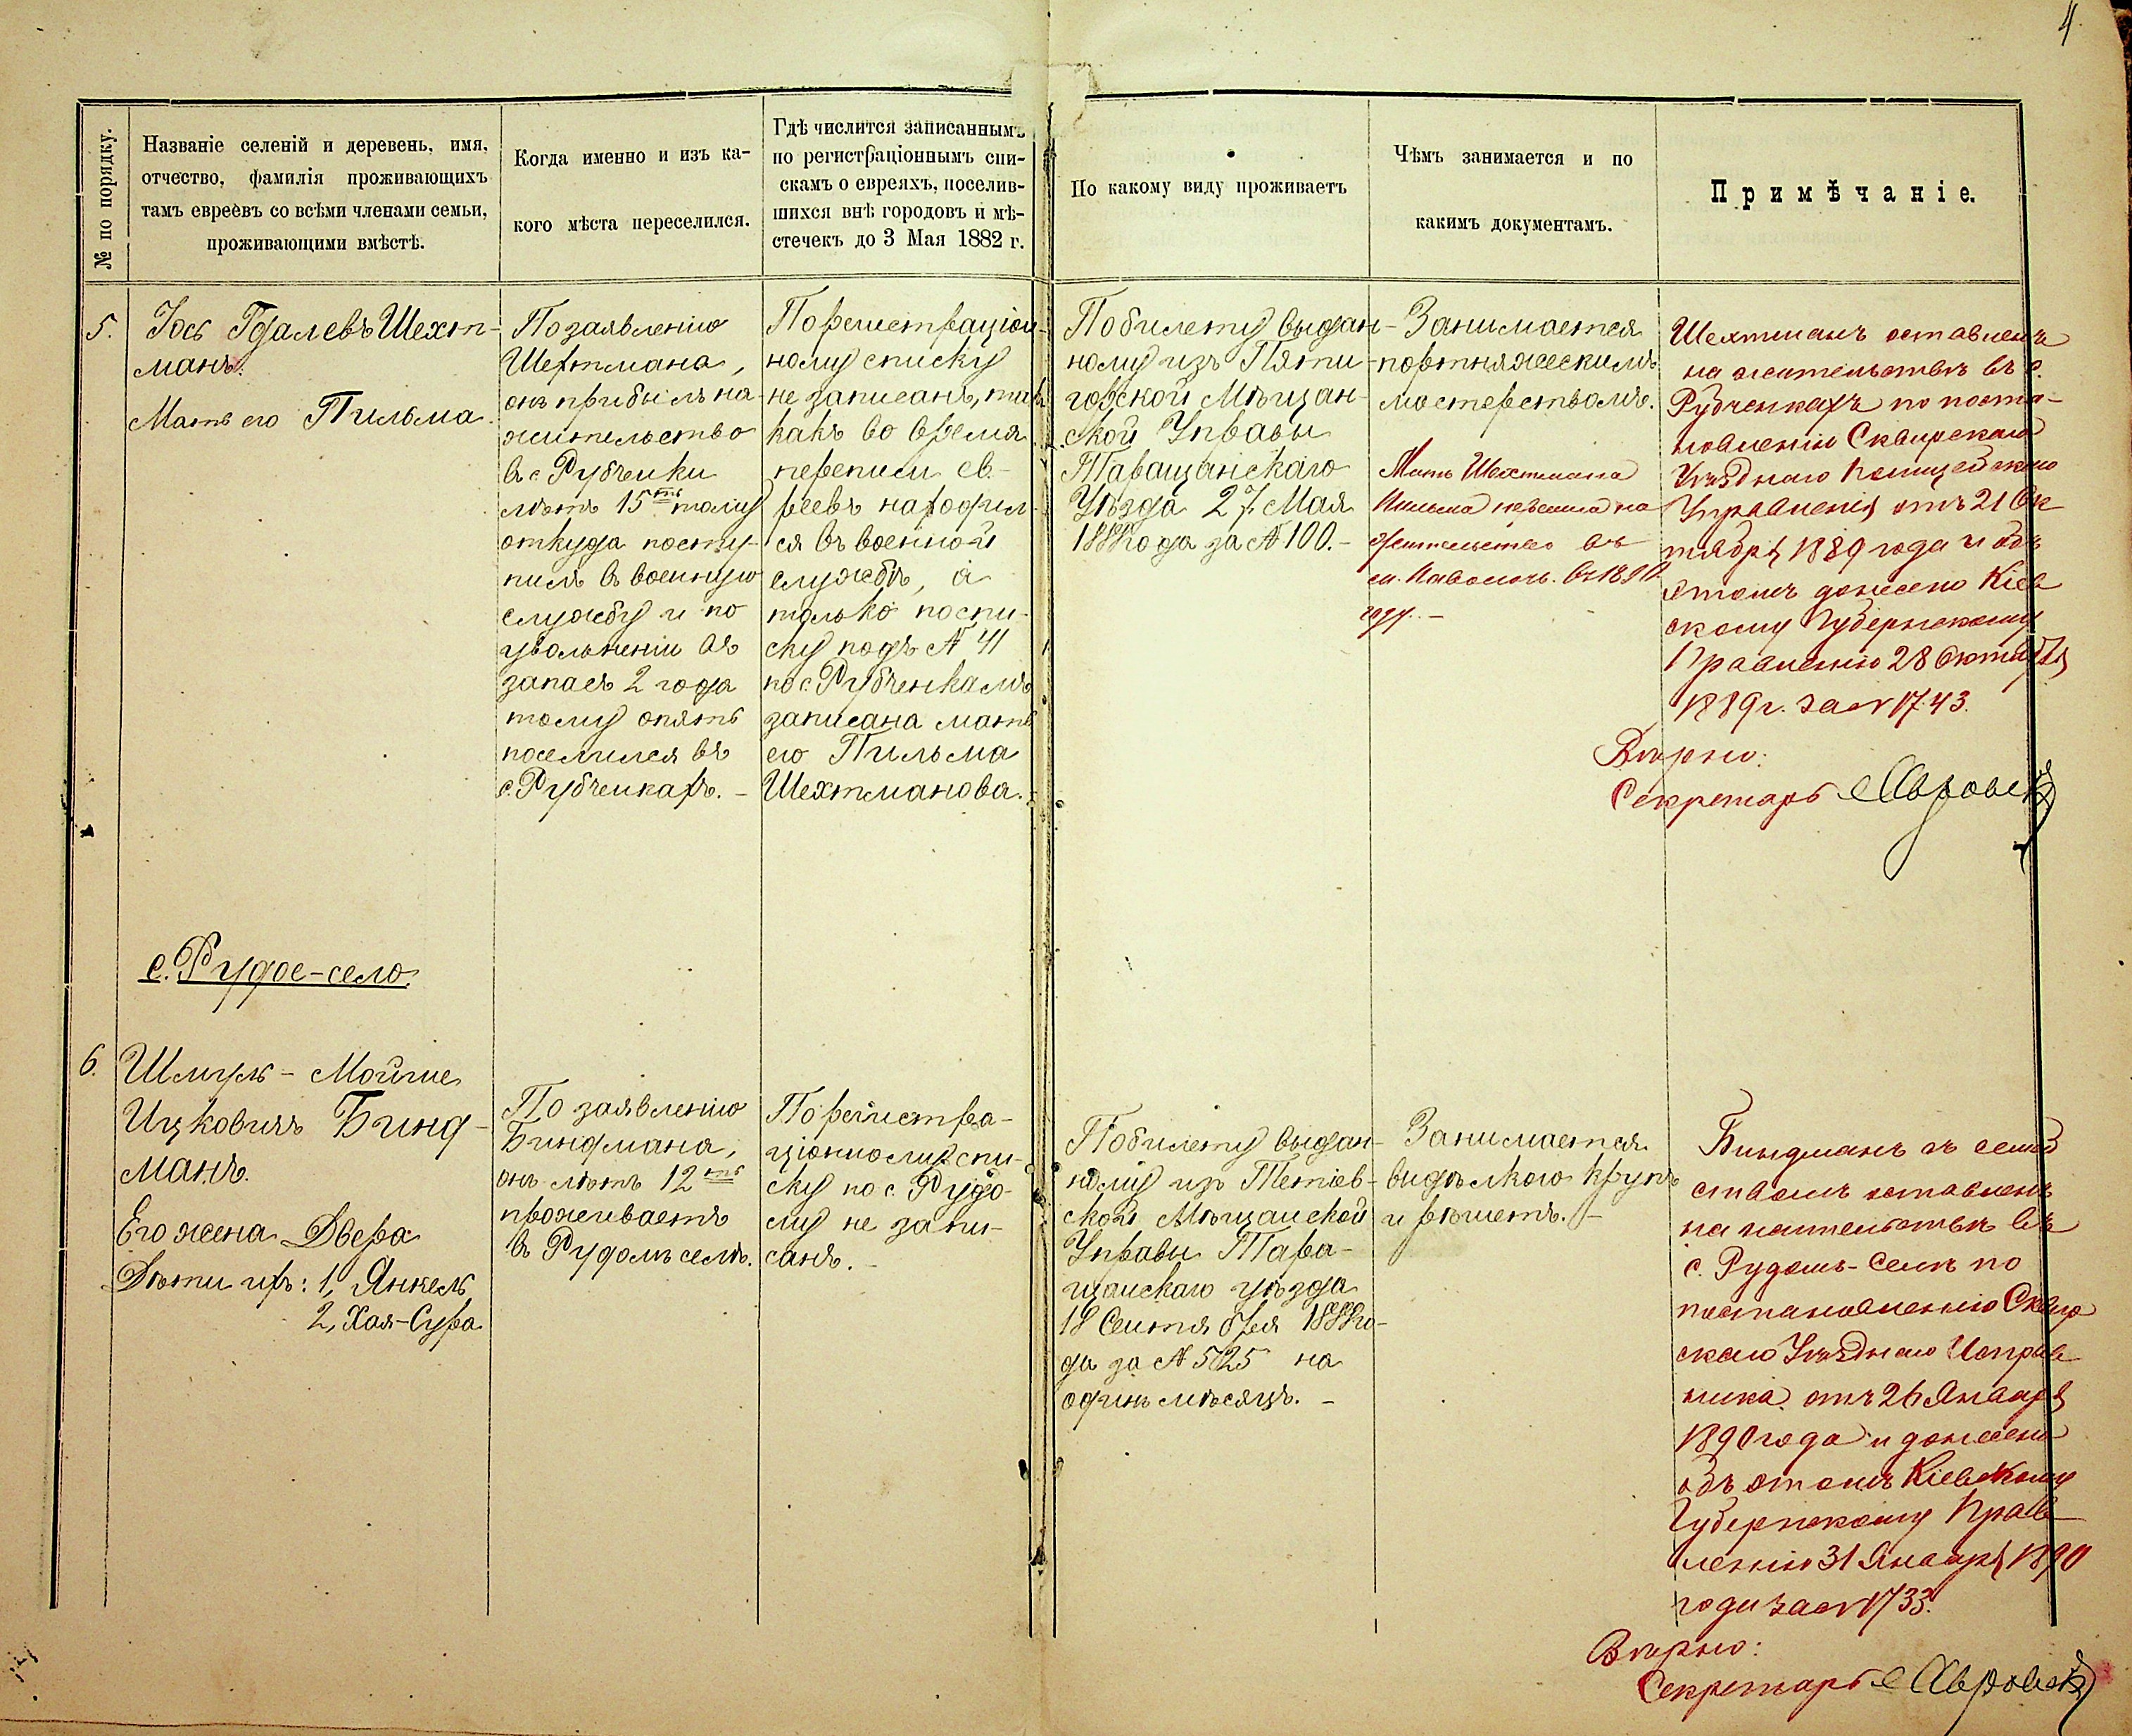 4
№ по порядку.
Названіе селеній и деревень, имя,
отчество, фамилія проживающихъ
тамъ евреевъ со всѣми членами семьи,
проживающими вмѣстѣ.
Когда именно и изъ ка-
кого мѣста переселился.
Гдѣ числится записаннымъ
по регистраціоннымъ спи-
скамъ о евреяхъ, поселив-
шихся внѣ городовъ и мѣ-
стечекъ до 3 Мая 1882 г.
По какому виду проживаетъ
Чѣмъ занимается и по
какимъ документамъ.
Примѣчаніе.
5.
Іось Гдалевъ Шехт-
манъ.
Мать его Пильма.
По заявленію
Шехтмана,
онъ прибылъ на
жительство
в с. Рубченки
лѣтъ 15ть тому
откуда посту-
пилъ въ военную
службу и по
увольненіи въ
запасъ 2 года
тому опять
поселился въ
с. Рубченкахъ. –
По регистраціон-
ному списку
не записанъ, такъ
какъ во время
переписи ев-
реевъ находил-
ся въ военной
службѣ, а
только по спи-
ску подъ № 41
по с. Рубченкамъ
записана мать
его Пильма
Шехтманова. –
По билету выдан-
ному изъ Пяти-
горской Мѣщан-
ской Управы
Таращанскаго
Уѣзда 27 Мая
188 года за № 100. –
Занимается
портняжескимъ
мастерствомъ.
Мать Шехтмана
Пильма перешла на
жительство въ
м. Паволочь въ 1890
году. –
Шехтманъ оставленъ
на жительствѣ въ с.
Рубченкахъ по поста-
новленію Сквирскаго
Уѣзднаго Полицейскаго
Управленія отъ 21 Ок
тября 1889 года и объ
этомъ донесено Кіев
скому Губернскому
Правленію 28 Октября
1889 г. за № 1743.
Вѣрно:
Секретарь
с. Рудое-село.
6.
Шмуль – Мойше
Ицковичъ Бинд-
манъ.
Его жена Двера
Дѣти ихъ: 1, Янкель
2, Хая-Сура
По заявленію
Биндмана,
онъ лѣтъ 12ть
проживаетъ
въ Рудомъ селѣ.
По регистра-
ціонному спи-
ску по с. Рудо-
му не запи-
санъ. –
По билету выдан-
ному изъ Тетіев-
ской Мѣщанской
Управы Тара-
щанскаго уѣзда
18 Сентября 188 го-
да за № 525 на
одинъ мѣсяцъ. –
Занимается
выдѣлкою крупъ
и рѣшетъ. –
Биндманъ съ семей
ствомъ оставленъ
на жительствѣ въ
с. Рудомъ-Селѣ по
постановленію Сквир
скаго Уѣзднаго Исправ
ника отъ 26 Января
1890 года и донесено
объ этомъ Кіевскому
Губернскому Прав
ленію 31 Января 1890
года за № 1733.
Вѣрно:
Секретарь